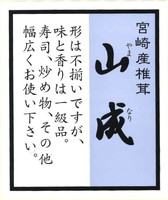 宮崎産椎茸
山成
やま
なり
形は不揃いですが、
味と香りは一級品。
寿司、炒め物、その他
幅広くお使い下さい。